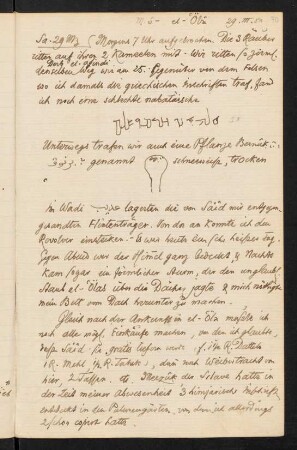 M S - el-'Öla 29. III.
Sa. 29 III/3 (Morgens 7 Uhr aufgebrochen. Die 3 Räuber
ritten auf ihren 2 Kameelen mit. - Wir ritten so ziemlich
denselben Weg wie am 25. Gegenüber von dem Felsen
wo ich damals die griechischen Inschriften traf, fand
ich noch eine schlechte nabatäische
Unterwegs trafen wir auch eine Pflanze
genannt schneeweiss, trocken
in Wadi lagerten die von Saïd mir entgegen-
gesandten Flintenträger. Von da an konnte ich den
Revolver einstecken. - Es war heute ein sehr heisser Tag.
Gegen Abend war der Himmel ganz bedeckt & Nachts
kam sogar ein förmlicher Sturm, der den unglaubl.
Staub el-'Öla's über die Dächer jagte & mich nötigte
mein Bett vom Dach herunter zu machen.
Gleich nach der Ankunft in el-'Öla musste ich
noch alle mögl. Einkäufe machen, von den ich glaubte,
dass Saïd sie gratis liefern werde, f. 1 M R. Datteln
1 R. Mehl, dann noch
hier, 2 Waffen. der Sclave hatte in
der Zeit meiner Abwesenheit 3 himjarische Inschriften
entdeckt in den Palmengärten, von denen ich allerdings
2 schon copirt hatte.